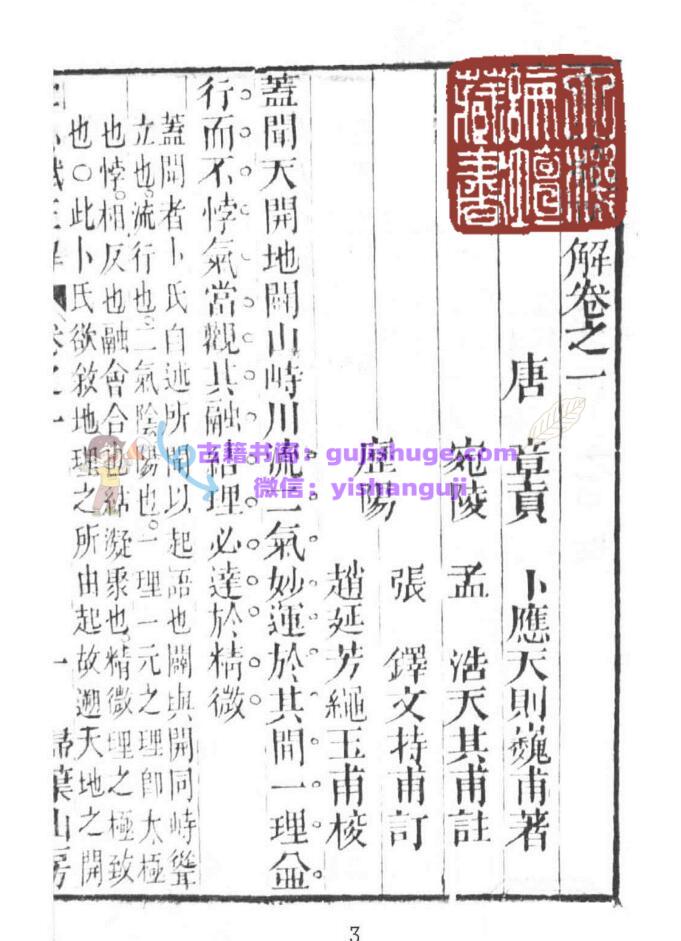 天機論壇藏書
解卷之一
唐 章貢 卜應天則巍甫著
宛陵 孟 浩天其甫註
歷陽
張 鐸文持甫訂
趙延芳繩玉甫校
蓋聞天開地闢山峙川流二氣妙運於其間一理並
行而不悖氣當觀其融結理必達於精微
蓋聞者卜氏自述所聞以起語也闢與開同峙聳
立也流行也二氣陰陽也一理一元之理卽太極
也悖相反也融會合也結凝聚也精微理之極致
也○此卜氏欲敘地理之所由起故遡天地之開
卷之一 一 掃葉山房
古籍书阁：gujishuge.com
微信：yishanguji
3